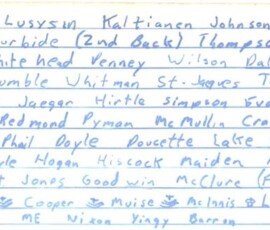 Lusysin Kaltianen Johnson
urbide (2nd Back) Thomps
hitehead Penney Wilson Dal
umble Whitman St-Jaques T
Jaegar Hirtle simpson Eva
Redmond Pyman McMullin Cra
Phail Doyle Doucette Lake
le Hogan Hiscock Maiden
t Jones Goodwin McClure (F
Cooper Muise McInnis L
ME Nixon Yingy Barron